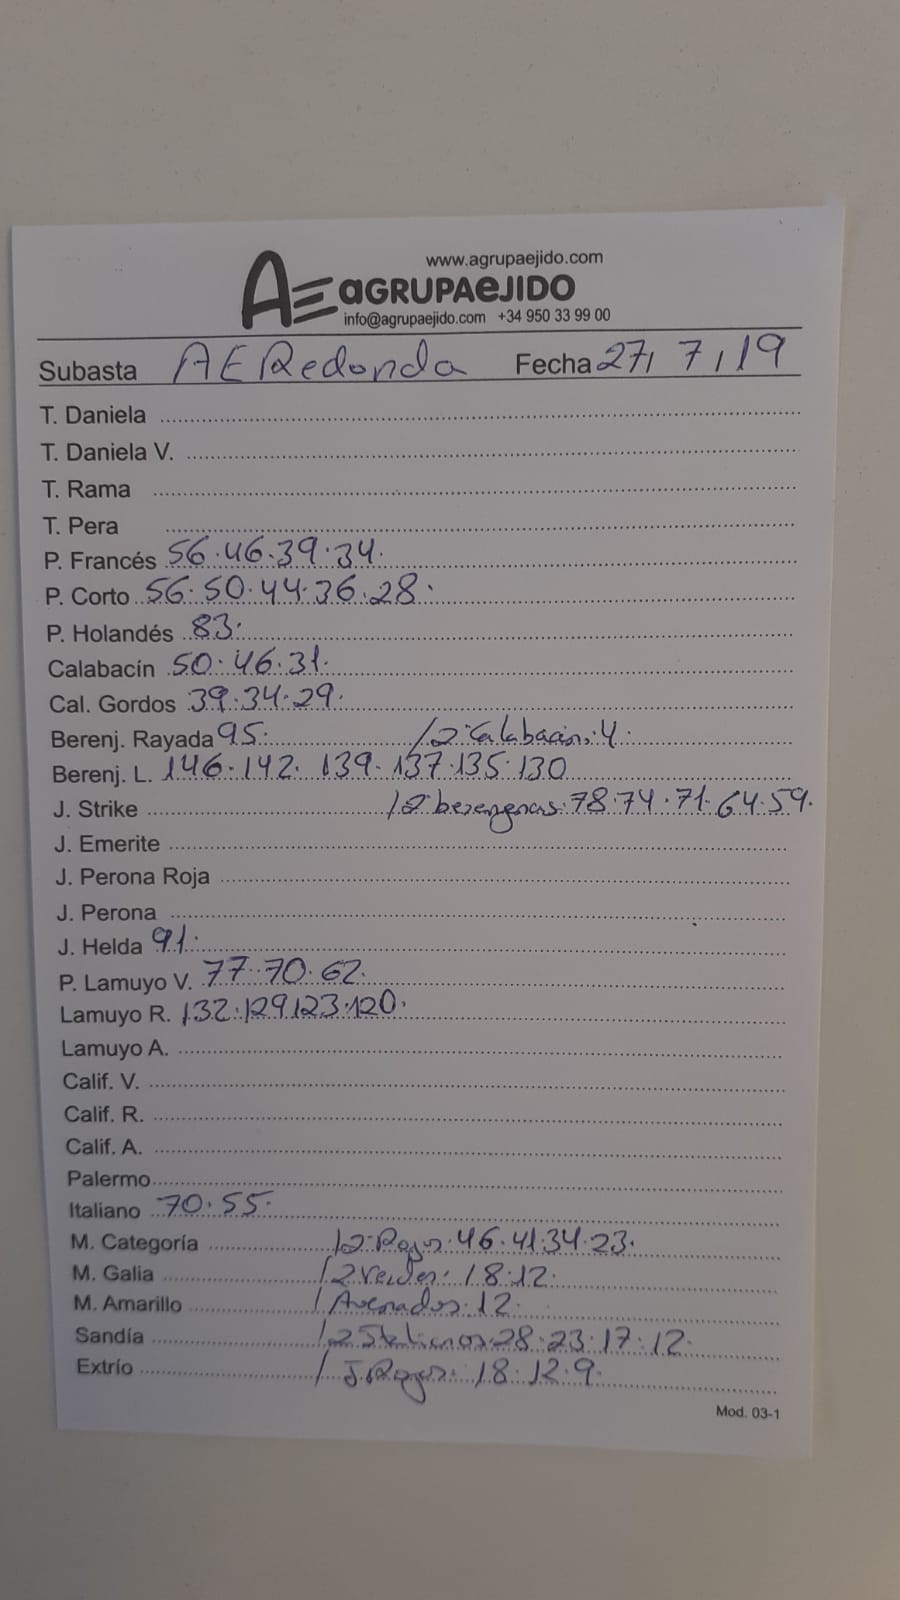 www.agrupaejido.com
AE aGRUPAeJIDO
info@agrupaejido.com +34 950 33 99 00
Subasta AE Redonda Fecha 27/ 7/19
T. Daniela
T. Daniela V.
T. Rama
T. Pera
P. Francés 56.46.39.34.
P. Corto 56.50.44.36.28.
P. Holandés 83.
Calabacín 50.46.31.
Cal. Gordos 39.34.29.
Berenj. Rayada 95. /2ª Calabacín: 4.
Berenj. L. 146.142. 139.137.135.130
J. Strike /2ª berengenas: 78.74.71.64.59.
J. Emerite
J. Perona Roja
J. Perona
J. Helda 91.
P. Lamuyo V. 77.70.62.
Lamuyo R. 132.129.123.120.
Lamuyo A.
Calif. V.
Calif. R.
Calif. A.
Palermo
Italiano 70.55.
M. Categoría /2ª Rojos: 46.41.34.23.
M. Galia /2 Verdes: 18.12.
M. Amarillo / Asurados: 12.
Sandía /2 Italianos: 28.23.17.12.
Extrío / J. Rojas: 18.12.9.
Mod. 03-1